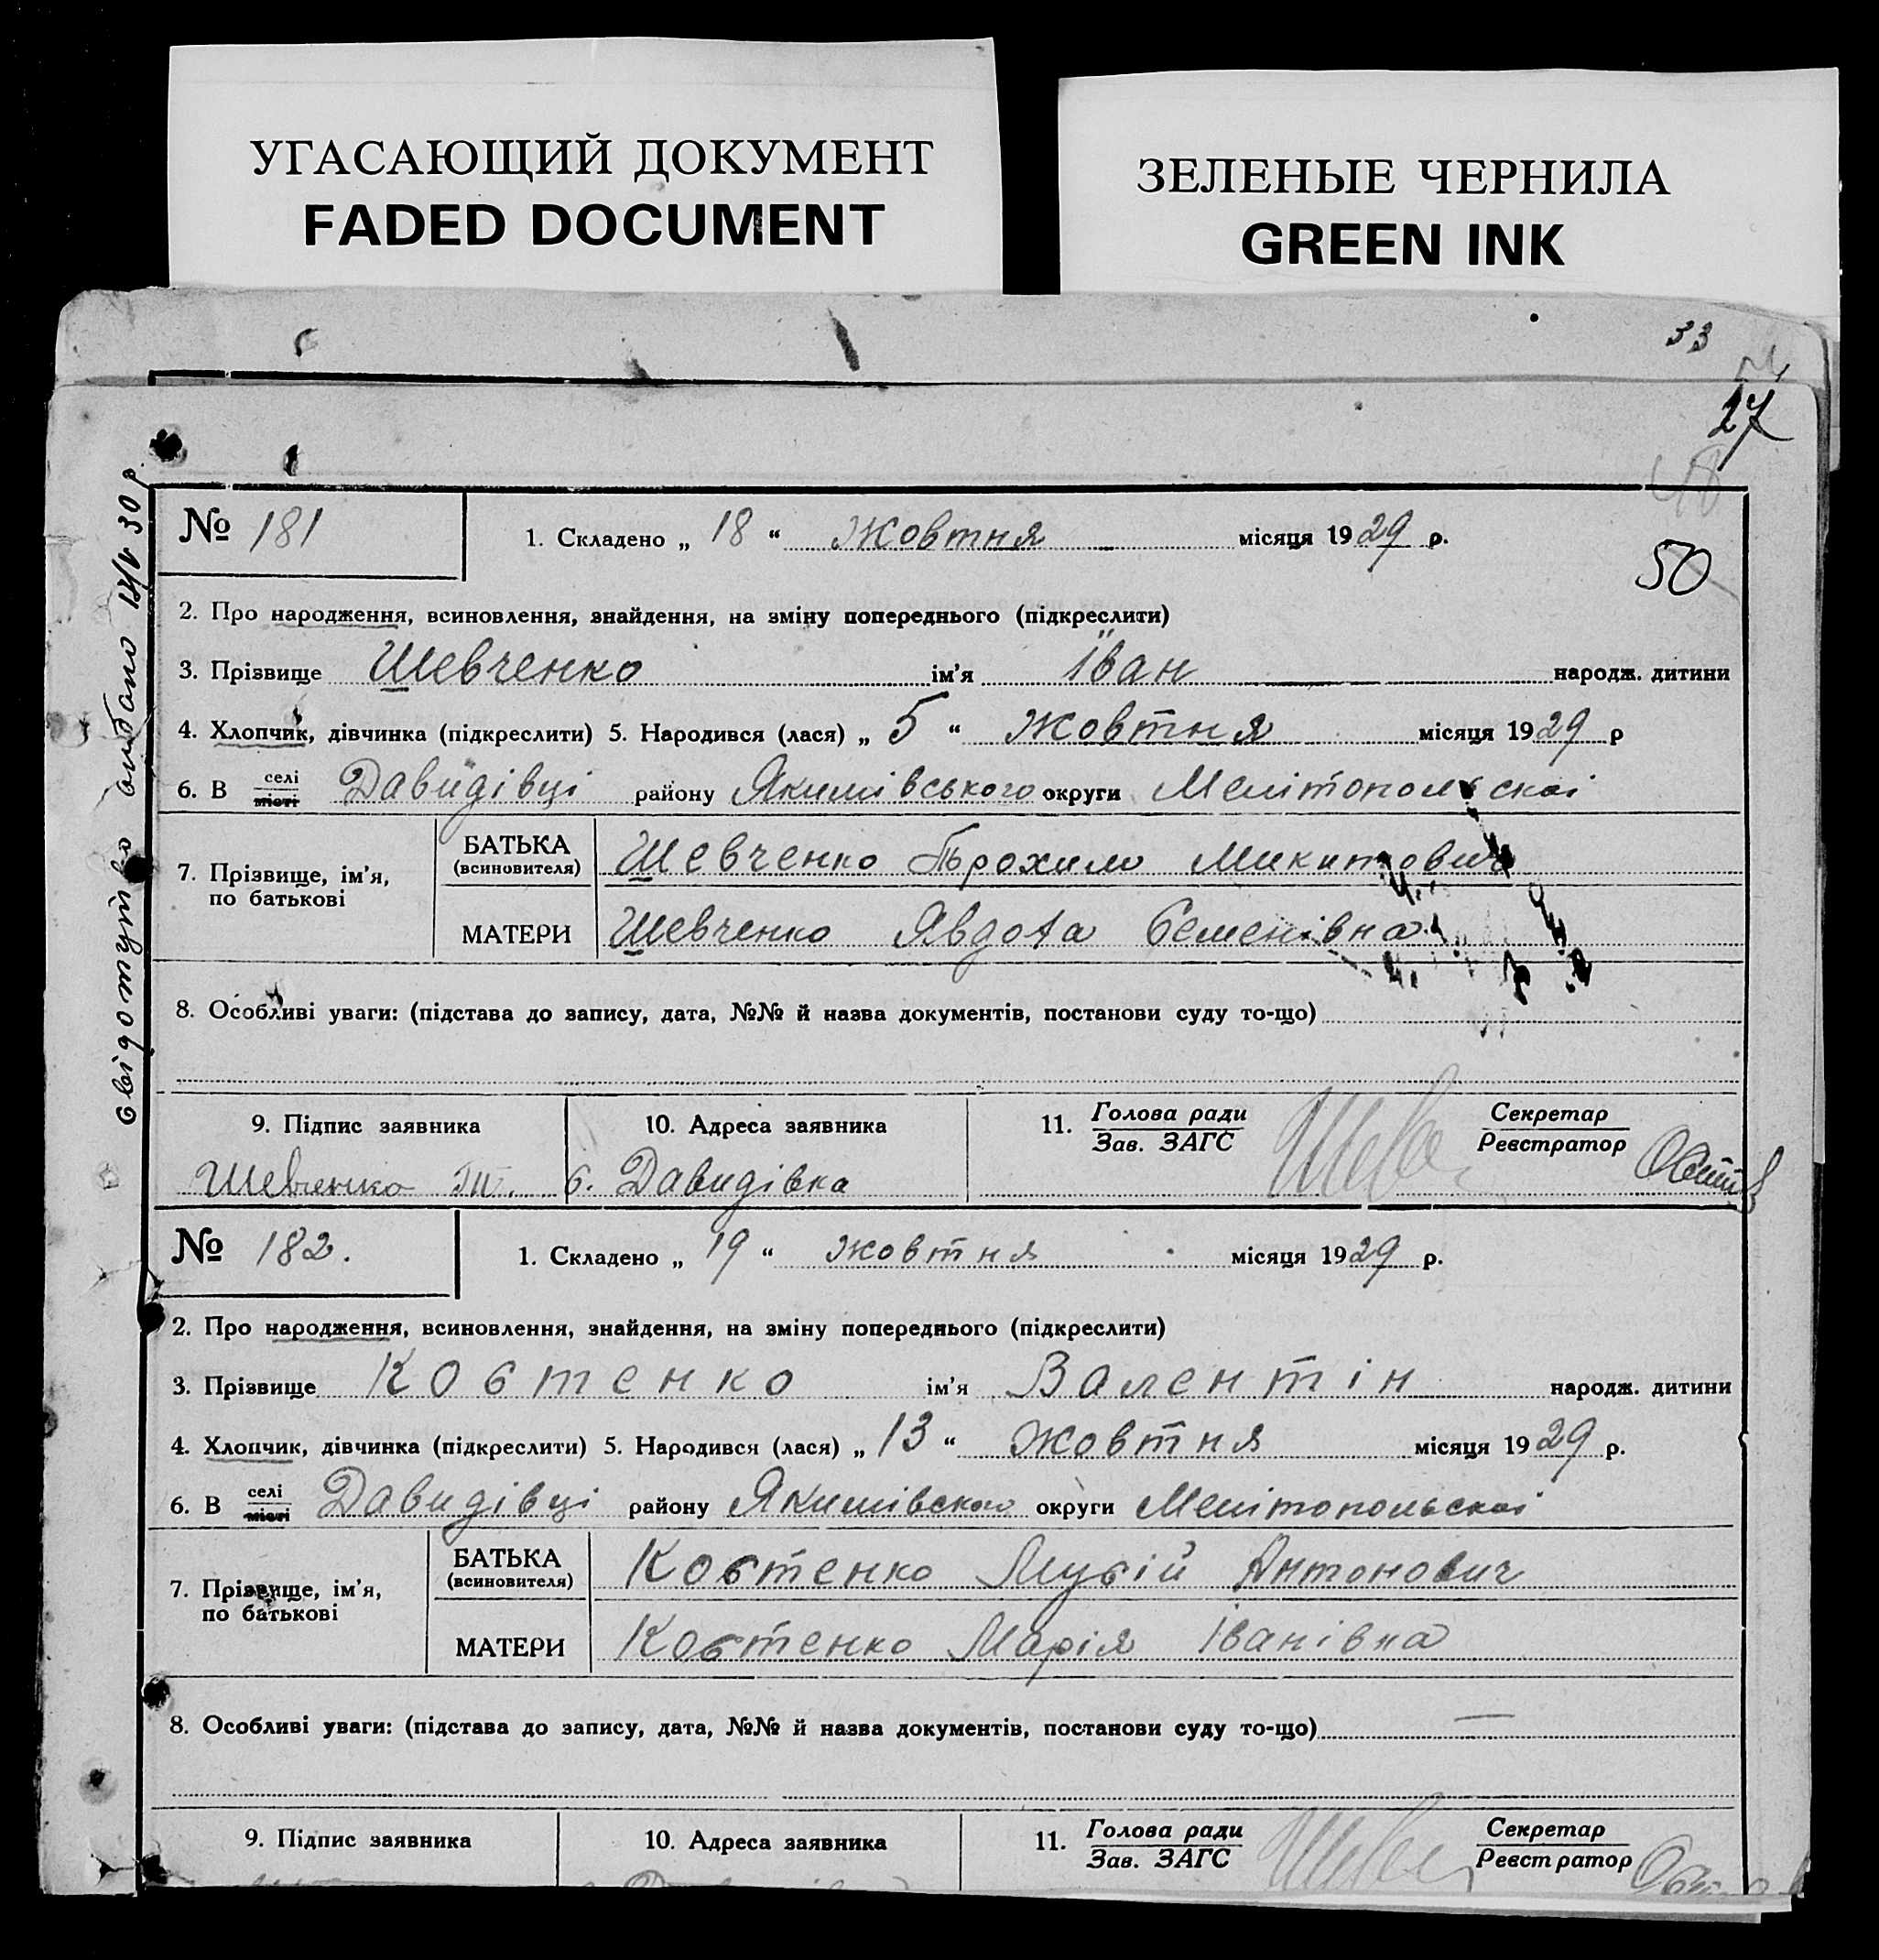 УГАСАЮЩИЙ ДОКУМЕНТ
FADED DOCUMENT
ЗЕЛЕНЫЕ ЧЕРНИЛА
GREEN INK
33
27
50
№ 181
1. Складено „ 18 “ Жовтня місяця 1929 р.
2. Про народження, всиновлення, знайдення, на зміну попереднього (підкреслити)
3. Прізвище Шевченко ім’я Іван народж. дитини
4. Хлопчик, дівчинка (підкреслити) 5. Народився (лася) „ 5 “ Жовтня місяця 1929 р
6. В селі місті Давидівці району Якимівського округи Мелітопольскої
7. Прізвище, ім’я, по батькові
БАТЬКА (всиновителя) Шевченко Трохим Микитович
МАТЕРИ Шевченко Явдоха Семенівна
8. Особливі уваги: (підстава до запису, дата, №№ й назва документів, постанови суду то-що)
9. Підпис заявника 10. Адреса заявника 11. Голова ради Зав. ЗАГС Секретар Реєстратор
Шевченко с. Давидівка
№ 182.
1. Складено „ 19 “ жовтня місяця 1929 р.
2. Про народження, всиновлення, знайдення, на зміну попереднього (підкреслити)
3. Прізвище Костенко ім’я Валентін народж. дитини
4. Хлопчик, дівчинка (підкреслити) 5. Народився (лася) „ 13 “ жовтня місяця 1929 р.
6. В селі місті Давидівці району Якимівского округи Мелітопольскої
7. Прізвище, ім’я, по батькові
БАТЬКА (всиновителя) Костенко Мусій Антонович
МАТЕРИ Костенко Марія Іванівна
8. Особливі уваги: (підстава до запису, дата, №№ й назва документів, постанови суду то-що) —
9. Підпис заявника 10. Адреса заявника 11. Голова ради Зав. ЗАГС Секретар Реєстратор
свідоцтво видано 30 р.